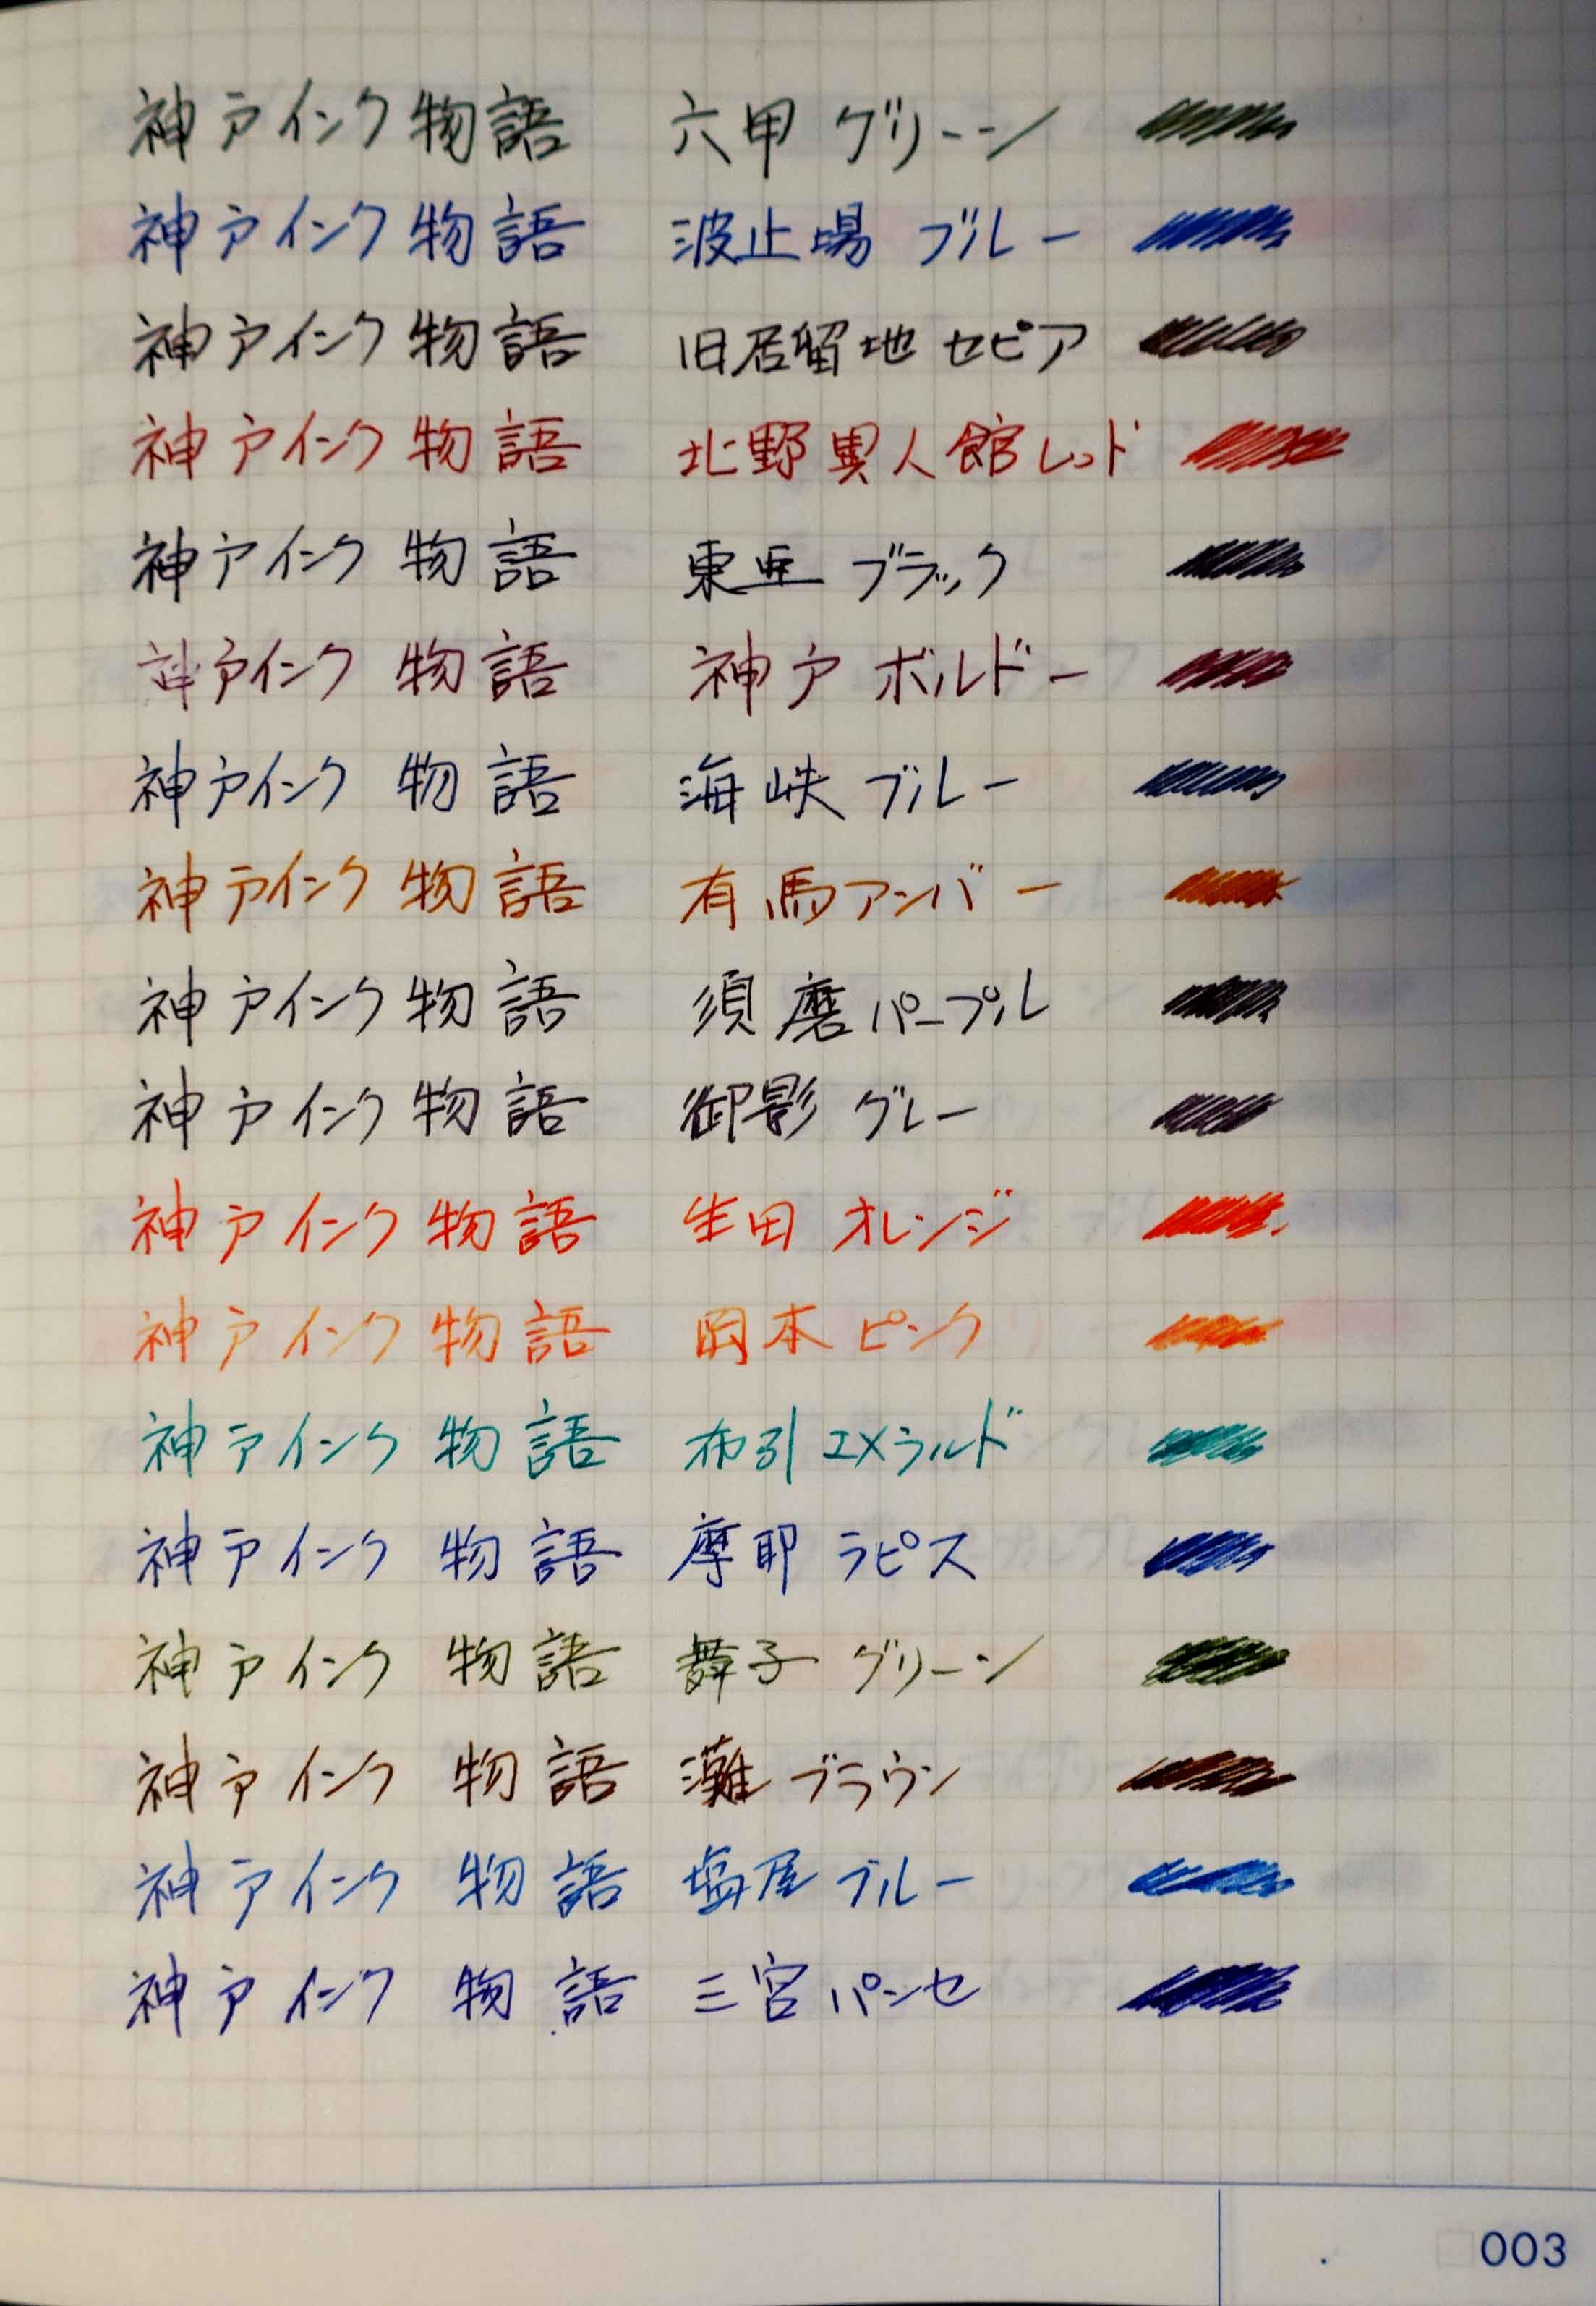 神戸インク物語 六甲グリーン
神戸インク物語 波止場ブルー
神戸インク物語 旧居留地セピア
神戸インク物語 北野異人館レッド
神戸インク物語 東亜ブラック
神戸インク物語 神戸ボルドー
神戸インク物語 海峡ブルー
神戸インク物語 有馬アンバー
神戸インク物語 須磨パープル
神戸インク物語 御影グレー
神戸インク物語 生田オレンジ
神戸インク物語 岡本ピンク
神戸インク物語 布引エメラルド
神戸インク物語 摩耶ラピス
神戸インク物語 舞子グリーン
神戸インク物語 灘ブラウン
神戸インク物語 塩屋ブルー
神戸インク物語 三宮パンセ
003